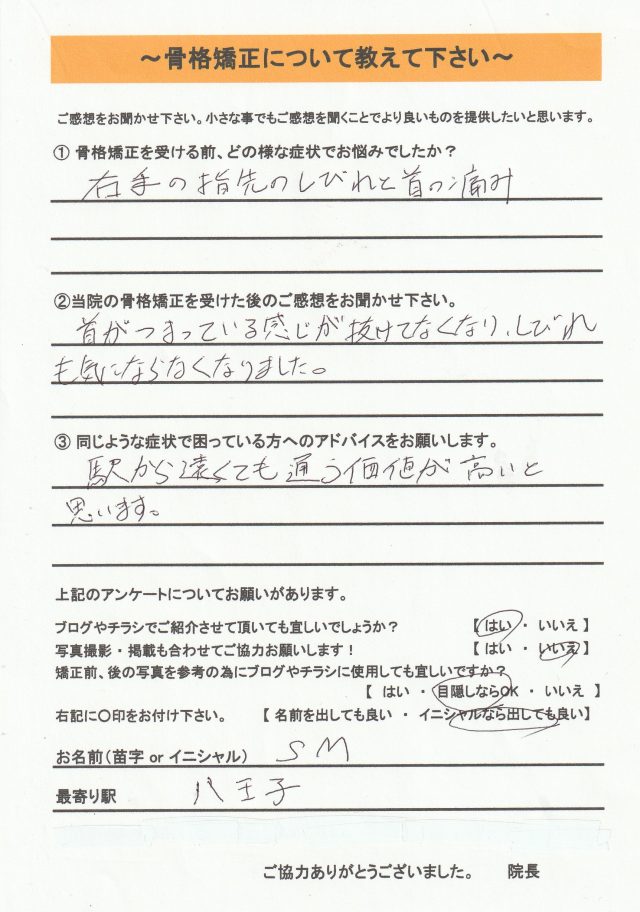 ～骨格矯正について教えて下さい～
ご感想をお聞かせ下さい。小さな事でもご感想を聞くことでより良いものを提供したいと思います。
① 骨格矯正を受ける前、どの様な症状でお悩みでしたか？
右手の指先のしびれと首の痛み
②当院の骨格矯正を受けた後のご感想をお聞かせ下さい。
首がつまっている感じが抜けてなくなり、しびれ
も気にならなくなりました。
③ 同じような症状で困っている方へのアドバイスをお願いします。
駅から遠くても通う価値が高いと
思います。
上記のアンケートについてお願いがあります。
ブログやチラシでご紹介させて頂いても宜しいでしょうか？ 【 はい ・ いいえ 】
写真撮影・掲載も合わせてご協力お願いします！ 【 はい ・ いいえ 】
矯正前、後の写真を参考の為にブログやチラシに使用しても宜しいですか？
【 はい ・ 目隠しならOK ・ いいえ 】
右記に〇印をお付け下さい。 【 名前を出しても良い ・ イニシャルなら出しても良い】
お名前（苗字 or イニシャル） SM
最寄り駅 八王子
ご協力ありがとうございました。 院長